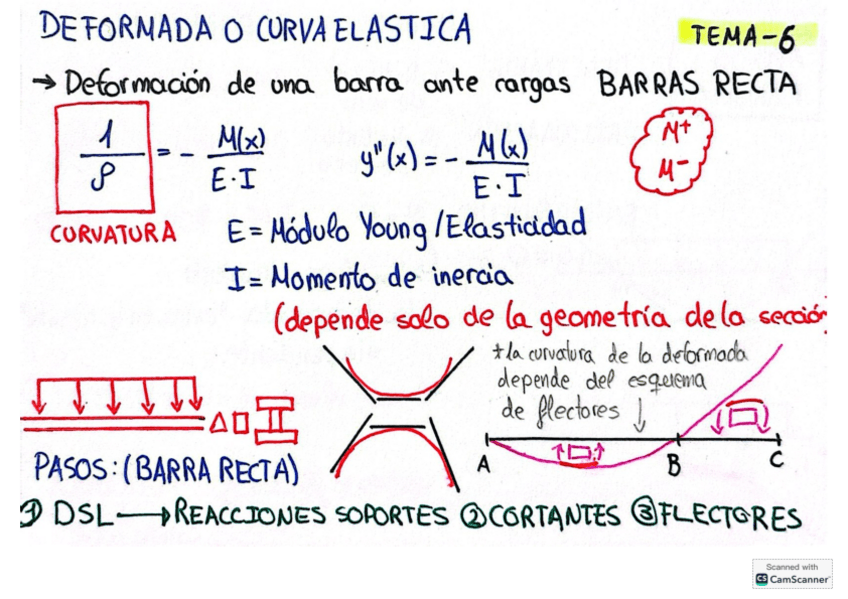 DEFORMADA O CURVA ELASTICA
TEMA-6
→ Deformación de una barra ante cargas BARRAS RECTA
1/ρ = - M(x)/E·I
y''(x) = - M(x)/E·I
M+
M-
CURVATURA
E = Módulo Young / Elasticidad
I = Momento de inercia
(depende solo de la geometría de la sección
*la curvatura de la deformada
depende del esquema
de flectores ↓
A B C
PASOS: (BARRA RECTA)
① DSL → REACCIONES SOPORTES ② CORTANTES ③ FLECTORES
Scanned with
CS CamScanner